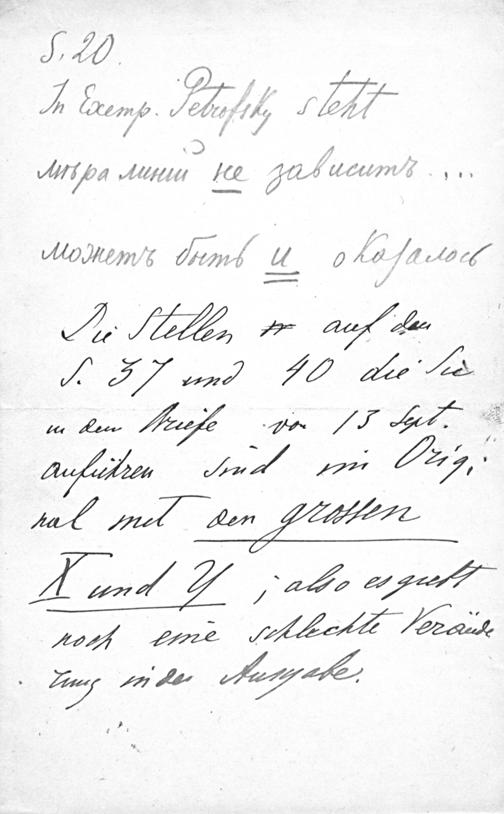 S. 20.
In Exemp. Petrofsky steht
мѣра линий не зависитъ ....
можетъ быть и оказалось
Die Stellen auf den
S. 37 und 40 die Sie
in dem Briefe von 13 Sept.
anführen sind im Orig:
nal mit den grossen
X und Y ; also es giebt
noch eine schlechte Verände
rung in der Ausgabe.